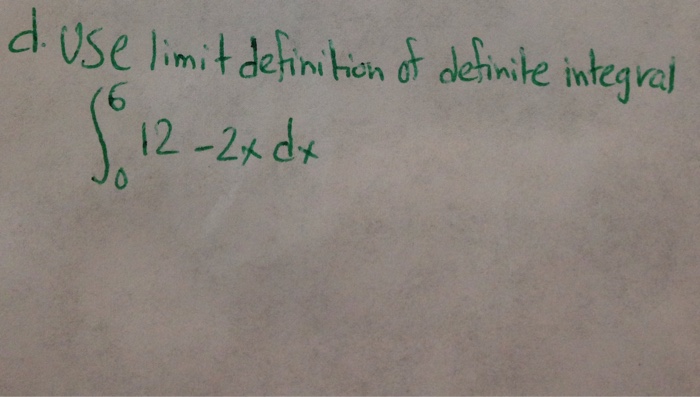 d. Use limit definition of definite integral
∫₀⁶ 12 - 2x dx